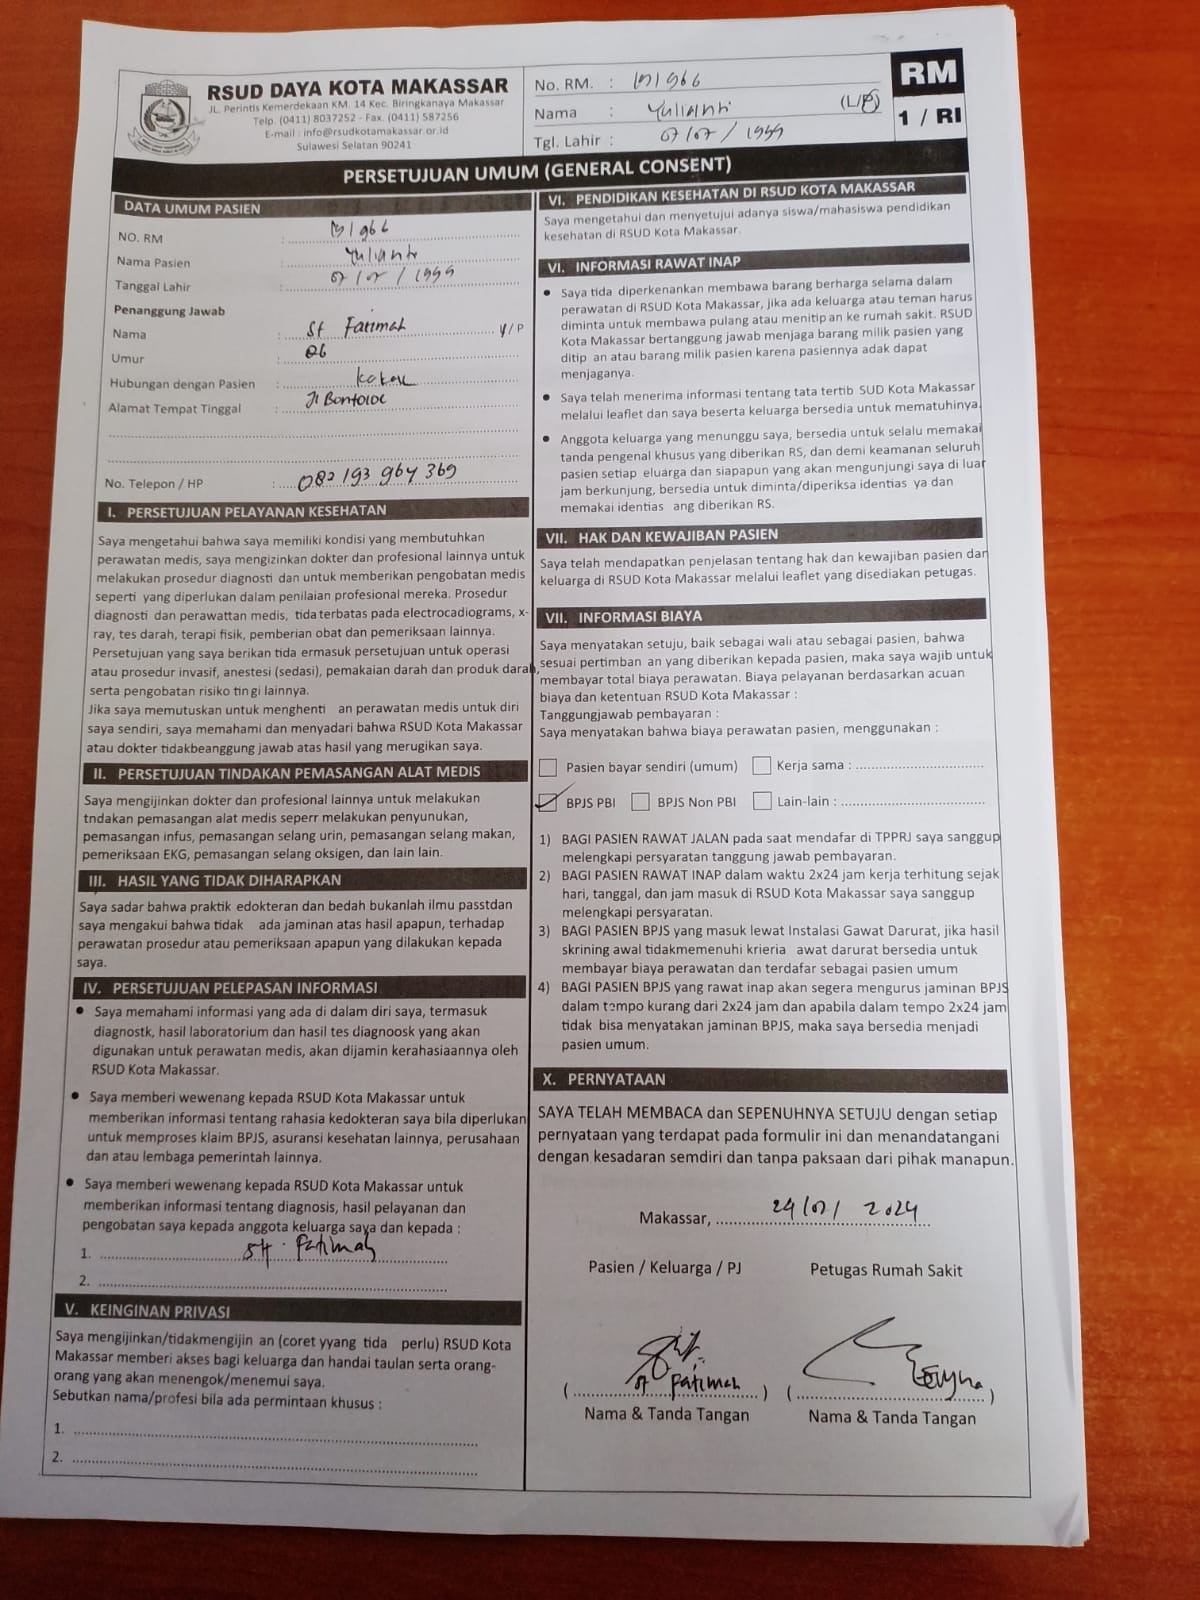 RSUD DAYA KOTA MAKASSAR
JL. Perintis Kemerdekaan KM. 14 Kec. Biringkanaya Makassar
Telp. (0411) 8037252 - Fax. (0411) 587256
E-mail : info@rsudkotamakassar.or.id
Sulawesi Selatan 90241
No. RM. :
Nama : Yulianti (L/P)
Tgl. Lahir : 07/07/1999
RM
1 / RI
PERSETUJUAN UMUM (GENERAL CONSENT)
DATA UMUM PASIEN
NO. RM :
Nama Pasien : Yulianti
Tanggal Lahir : 07/07/1999
Penanggung Jawab
Nama : St Fatimah /P
Umur : 26
Hubungan dengan Pasien :
Alamat Tempat Tinggal : Jl
No. Telepon / HP : 082 193 964 369
I. PERSETUJUAN PELAYANAN KESEHATAN
Saya mengetahui bahwa saya memiliki kondisi yang membutuhkan
perawatan medis, saya mengizinkan dokter dan profesional lainnya untuk
melakukan prosedur diagnosti dan untuk memberikan pengobatan medis
seperti yang diperlukan dalam penilaian profesional mereka. Prosedur
diagnosti dan perawattan medis, tidaterbatas pada electrocadiograms, x-
ray, tes darah, terapi fisik, pemberian obat dan pemeriksaan lainnya.
Persetujuan yang saya berikan tida ermasuk persetujuan untuk operasi
atau prosedur invasif, anestesi (sedasi), pemakaian darah dan produk darah,
serta pengobatan risiko tin gi lainnya.
Jika saya memutuskan untuk menghenti an perawatan medis untuk diri
saya sendiri, saya memahami dan menyadari bahwa RSUD Kota Makassar
atau dokter tidakbeanggung jawab atas hasil yang merugikan saya.
II. PERSETUJUAN TINDAKAN PEMASANGAN ALAT MEDIS
Saya mengijinkan dokter dan profesional lainnya untuk melakukan
tndakan pemasangan alat medis seperr melakukan penyunukan,
pemasangan infus, pemasangan selang urin, pemasangan selang makan,
pemeriksaan EKG, pemasangan selang oksigen, dan lain lain.
III. HASIL YANG TIDAK DIHARAPKAN
Saya sadar bahwa praktik edokteran dan bedah bukanlah ilmu passtdan
saya mengakui bahwa tidak ada jaminan atas hasil apapun, terhadap
perawatan prosedur atau pemeriksaan apapun yang dilakukan kepada
saya.
IV. PERSETUJUAN PELEPASAN INFORMASI
• Saya memahami informasi yang ada di dalam diri saya, termasuk
diagnostk, hasil laboratorium dan hasil tes diagnoosk yang akan
digunakan untuk perawatan medis, akan dijamin kerahasiaannya oleh
RSUD Kota Makassar.
• Saya memberi wewenang kepada RSUD Kota Makassar untuk
memberikan informasi tentang rahasia kedokteran saya bila diperlukan
untuk memproses klaim BPJS, asuransi kesehatan lainnya, perusahaan
dan atau lembaga pemerintah lainnya.
• Saya memberi wewenang kepada RSUD Kota Makassar untuk
memberikan informasi tentang diagnosis, hasil pelayanan dan
pengobatan saya kepada anggota keluarga saya dan kepada :
1. Fatimah
2.
V. KEINGINAN PRIVASI
Saya mengijinkan/tidakmengijin an (coret yyang tida perlu) RSUD Kota
Makassar memberi akses bagi keluarga dan handai taulan serta orang-
orang yang akan menengok/menemui saya.
Sebutkan nama/profesi bila ada permintaan khusus :
1.
2.
VI. PENDIDIKAN KESEHATAN DI RSUD KOTA MAKASSAR
Saya mengetahui dan menyetujui adanya siswa/mahasiswa pendidikan
kesehatan di RSUD Kota Makassar.
VI. INFORMASI RAWAT INAP
• Saya tida diperkenankan membawa barang berharga selama dalam
perawatan di RSUD Kota Makassar, Jika ada keluarga atau teman harus
diminta untuk membawa pulang atau menitip an ke rumah sakit. RSUD
Kota Makassar bertanggung jawab menjaga barang milik pasien yang
ditip an atau barang milik pasien karena pasiennya adak dapat
menjaganya.
• Saya telah menerima informasi tentang tata tertib SUD Kota Makassar
melalui leaflet dan saya beserta keluarga bersedia untuk mematuhinya.
• Anggota keluarga yang menunggu saya, bersedia untuk selalu memakai
tanda pengenal khusus yang diberikan RS, dan demi keamanan seluruh
pasien setiap eluarga dan siapapun yang akan mengunjungi saya di luar
jam berkunjung, bersedia untuk diminta/diperiksa identias ya dan
memakai identias ang diberikan RS.
VII. HAK DAN KEWAJIBAN PASIEN
Saya telah mendapatkan penjelasan tentang hak dan kewajiban pasien dan
keluarga di RSUD Kota Makassar melalui leaflet yang disediakan petugas.
VII. INFORMASI BIAYA
Saya menyatakan setuju, baik sebagai wali atau sebagai pasien, bahwa
sesuai pertimban an yang diberikan kepada pasien, maka saya wajib untuk
membayar total biaya perawatan. Biaya pelayanan berdasarkan acuan
biaya dan ketentuan RSUD Kota Makassar :
Tanggungjawab pembayaran :
Saya menyatakan bahwa biaya perawatan pasien, menggunakan :
Pasien bayar sendiri (umum) Kerja sama :
BPJS PBI BPJS Non PBI Lain-lain :
1) BAGI PASIEN RAWAT JALAN pada saat mendafar di TPPRJ saya sanggup
melengkapi persyaratan tanggung jawab pembayaran.
2) BAGI PASIEN RAWAT INAP dalam waktu 2x24 jam kerja terhitung sejak
hari, tanggal, dan jam masuk di RSUD Kota Makassar saya sanggup
melengkapi persyaratan.
3) BAGI PASIEN BPJS yang masuk lewat Instalasi Gawat Darurat, jika hasil
skrining awal tidakmemenuhi krieria awat darurat bersedia untuk
membayar biaya perawatan dan terdafar sebagai pasien umum
4) BAGI PASIEN BPJS yang rawat inap akan segera mengurus jaminan BPJS
dalam tempo kurang dari 2x24 jam dan apabila dalam tempo 2x24 jam
tidak bisa menyatakan jaminan BPJS, maka saya bersedia menjadi
pasien umum.
X. PERNYATAAN
SAYA TELAH MEMBACA dan SEPENUHNYA SETUJU dengan setiap
pernyataan yang terdapat pada formulir ini dan menandatangani
dengan kesadaran semdiri dan tanpa paksaan dari pihak manapun.
Makassar, 2024
Pasien / Keluarga / PJ Petugas Rumah Sakit
( St Fatimah ) ( )
Nama & Tanda Tangan Nama & Tanda Tangan